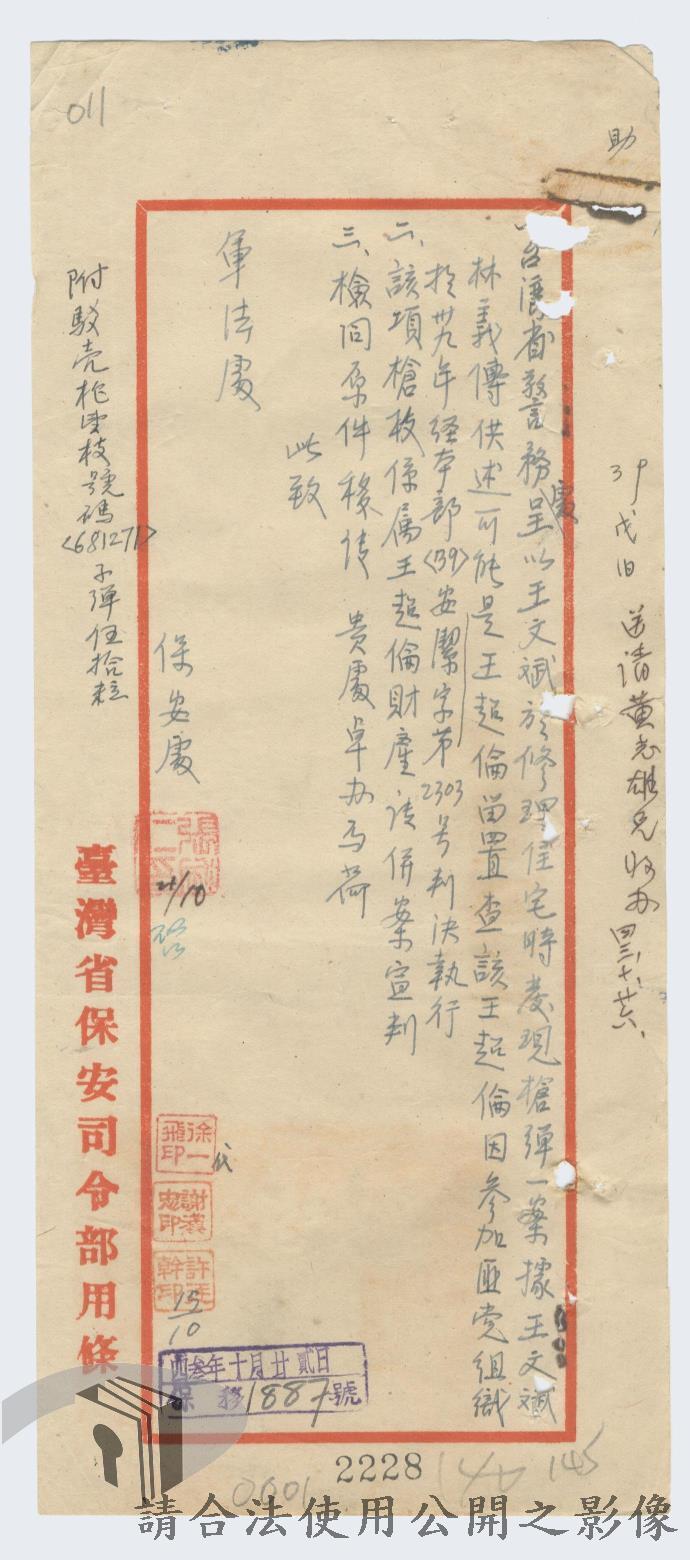 011
助
39戊旧 送請黃志雄兄收办 四三、十、廿六、
台灣省警務處呈以王文斌於修理住宅時發現槍彈一案據王文斌
林義傳供述可能是王超倫留置查該王超倫因參加匪党組織
於卅九年經本部<39>安潔字第2303号判決執行
二、該項槍枝係属王超倫財產請併案宣判
三、檢同原件移請 貴處卓办為荷
此致
軍法處
保安處
21/10
徐一飛印
代
謝漢忠印
15/10
四叁年十月廿貳日
保移1887號
附駁壳枪壹枝號碼<681271>子彈伍拾粒
臺灣省保安司令部用條
0001
2228
145
請合法使用公開之影像